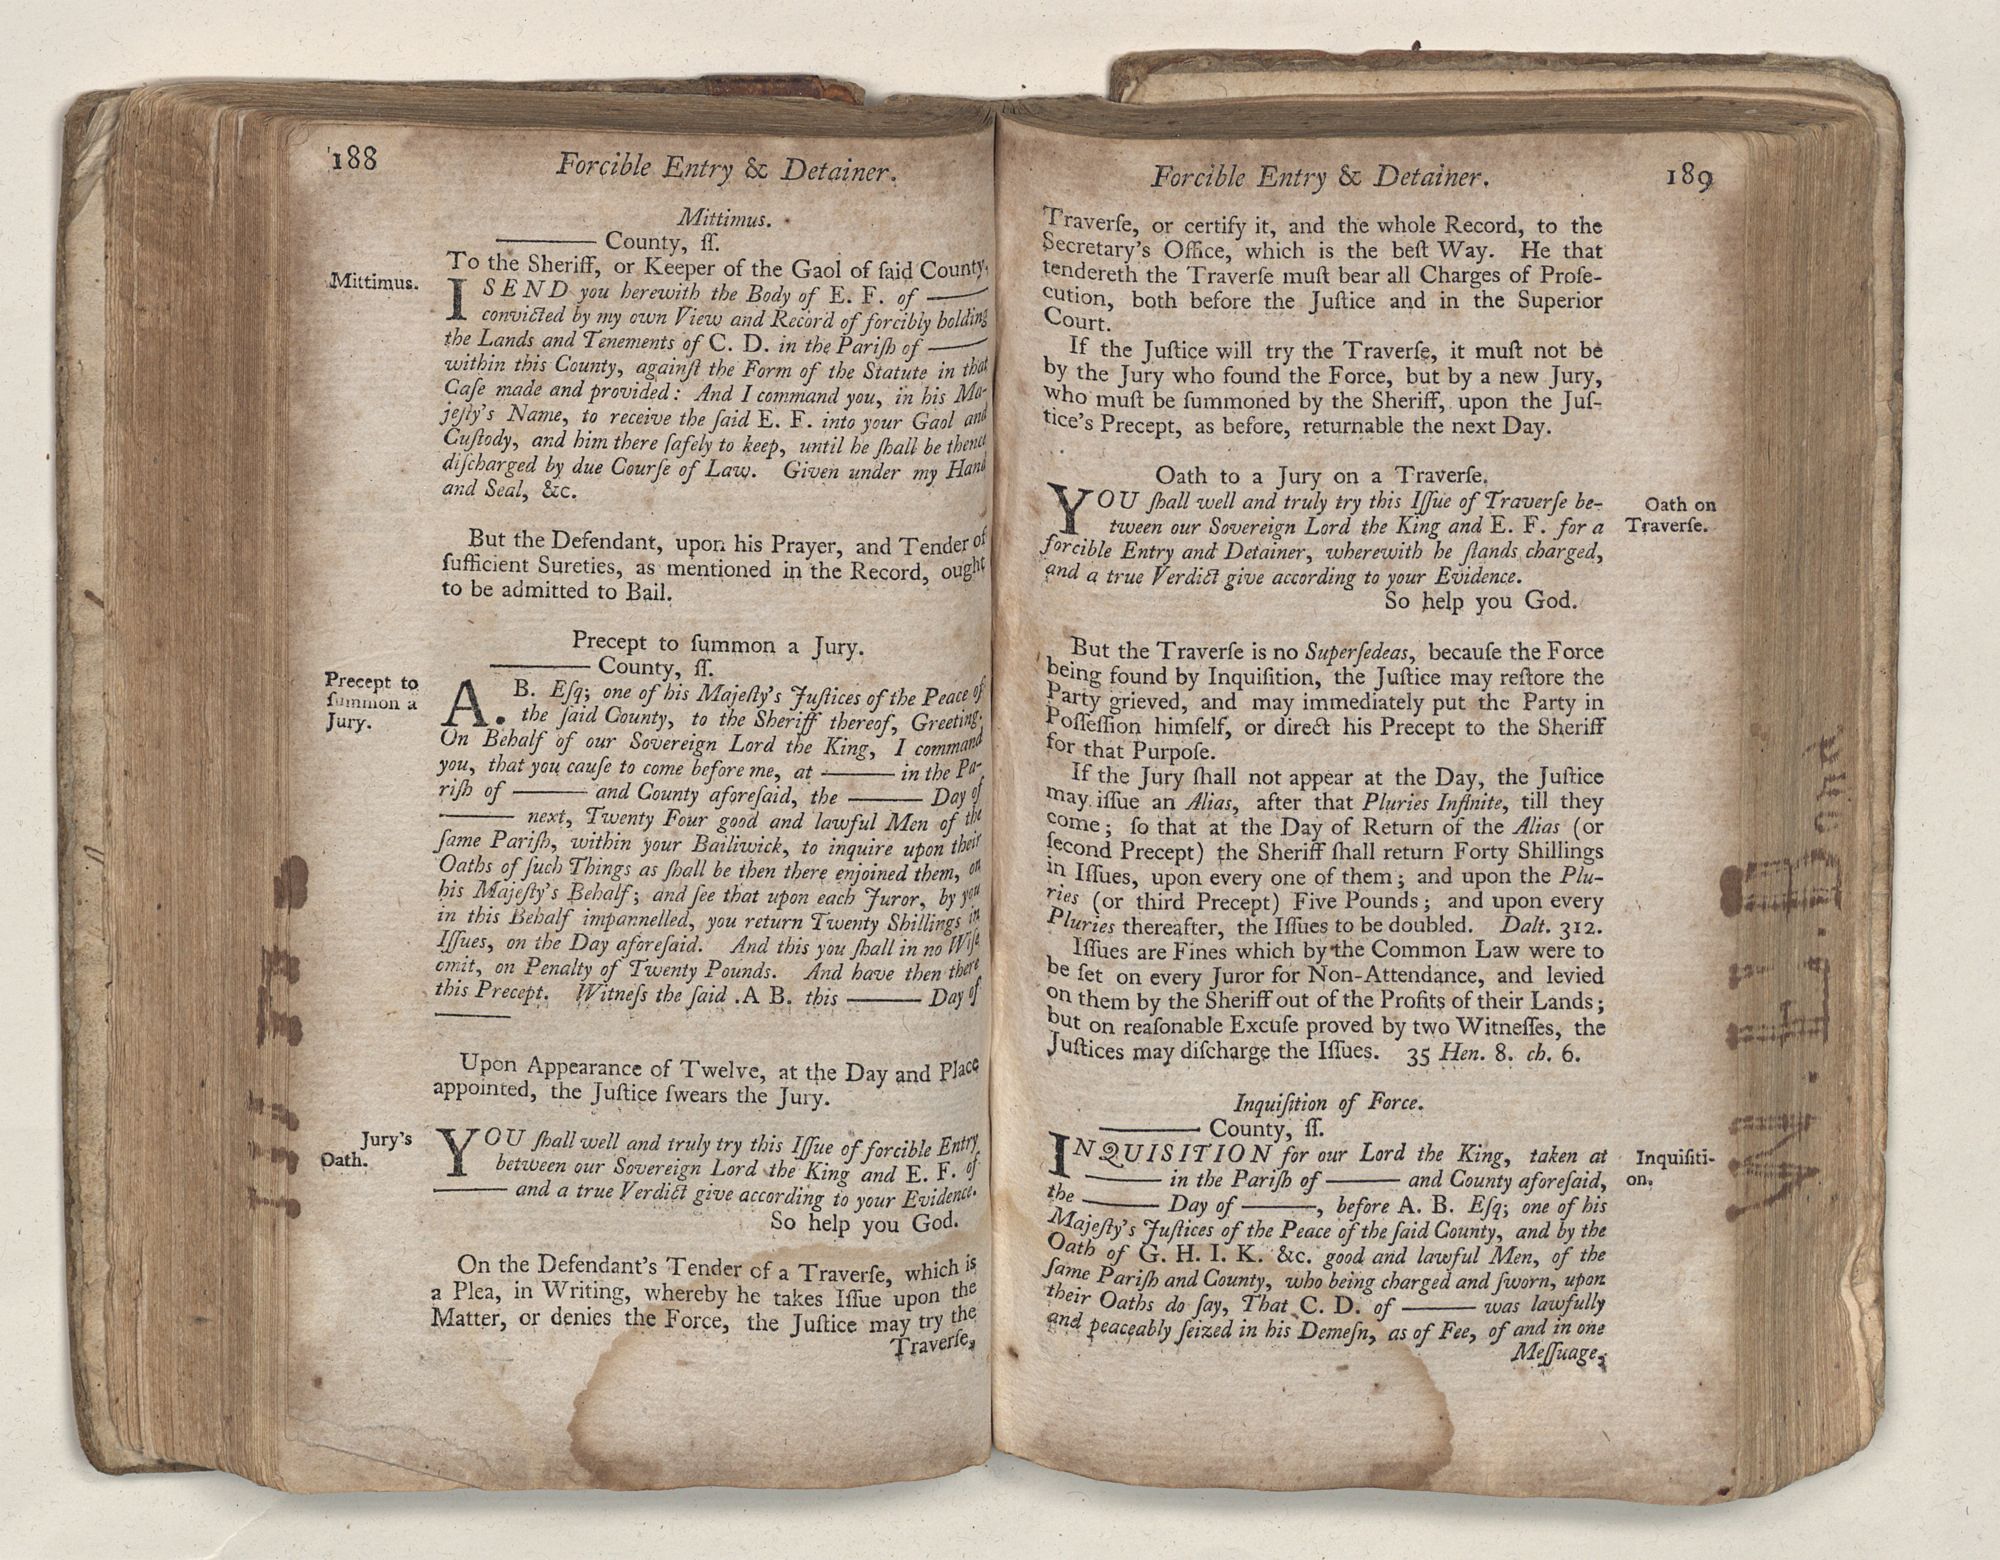 188
Forcible Entry & Detainer.
Mittimus.
——— County, ſſ.
Mittimus.
To the Sheriff, or Keeper of the Gaol of ſaid County,
I SEND you herewith the Body of E. F. of ———
convicted by my own View and Record of forcibly holding
the Lands and Tenements of C. D. in the Pariſh of ———
within this County, againſt the Form of the Statute in that
Caſe made and provided: And I command you, in his Ma-
jeſty's Name, to receive the ſaid E. F. into your Gaol and
Cuſtody, and him there ſafely to keep, until he ſhall be thence
diſcharged by due Courſe of Law. Given under my Hand
and Seal, &c.
But the Defendant, upon his Prayer, and Tender of
ſufficient Sureties, as mentioned in the Record, ought
to be admitted to Bail.
Precept to ſummon a Jury.
——— County, ſſ.
Precept to
ſummon a
Jury.
A. B. Eſq; one of his Majeſty's Juſtices of the Peace of
the ſaid County, to the Sheriff thereof, Greeting.
On Behalf of our Sovereign Lord the King, I command
you, that you cauſe to come before me, at ——— in the Pa-
riſh of ——— and County aforeſaid, the ——— Day of
——— next, Twenty Four good and lawful Men of the
ſame Pariſh, within your Bailiwick, to inquire upon their
Oaths of ſuch Things as ſhall be then there enjoined them, on
his Majeſty's Behalf; and ſee that upon each Juror, by you
in this Behalf impannelled, you return Twenty Shillings in
Iſſues, on the Day aforeſaid. And this you ſhall in no Wiſe
omit, on Penalty of Twenty Pounds. And have then there
this Precept. Witneſs the ſaid .A B. this ——— Day of
———
Upon Appearance of Twelve, at the Day and Place
appointed, the Juſtice ſwears the Jury.
Jury's
Oath.
YOU ſhall well and truly try this Iſſue of forcible Entry
between our Sovereign Lord the King and E. F. of
——— and a true Verdict give according to your Evidence.
So help you God.
On the Defendant's Tender of a Traverſe, which is
a Plea, in Writing, whereby he takes Iſſue upon the
Matter, or denies the Force, the Juſtice may try the
Traverſe,
Forcible Entry & Detainer.
189
Traverſe, or certify it, and the whole Record, to the
Secretary's Office, which is the beſt Way. He that
tendereth the Traverſe muſt bear all Charges of Proſe-
cution, both before the Juſtice and in the Superior
Court.
If the Juſtice will try the Traverſe, it muſt not be
by the Jury who found the Force, but by a new Jury,
who muſt be ſummoned by the Sheriff, upon the Juſ-
tice's Precept, as before, returnable the next Day.
Oath to a Jury on a Traverſe.
YOU ſhall well and truly try this Iſſue of Traverſe be-
tween our Sovereign Lord the King and E. F. for a
forcible Entry and Detainer, wherewith he ſtands charged,
and a true Verdict give according to your Evidence.
So help you God.
Oath on
Traverſe.
But the Traverſe is no Superſedeas, becauſe the Force
being found by Inquiſition, the Juſtice may reſtore the
Party grieved, and may immediately put the Party in
Poſſeſſion himſelf, or direct his Precept to the Sheriff
for that Purpoſe.
If the Jury ſhall not appear at the Day, the Juſtice
may iſſue an Alias, after that Pluries Infinite, till they
come; ſo that at the Day of Return of the Alias (or
ſecond Precept) the Sheriff ſhall return Forty Shillings
in Iſſues, upon every one of them; and upon the Plu-
ries (or third Precept) Five Pounds; and upon every
Pluries thereafter, the Iſſues to be doubled. Dalt. 312.
Iſſues are Fines which by the Common Law were to
be ſet on every Juror for Non-Attendance, and levied
on them by the Sheriff out of the Profits of their Lands;
but on reaſonable Excuſe proved by two Witneſſes, the
Juſtices may diſcharge the Iſſues. 35 Hen. 8. ch. 6.
Inquiſition of Force.
——— County, ſſ.
INQUISITION for our Lord the King, taken at
——— in the Pariſh of ——— and County aforeſaid,
the ——— Day of ———, before A. B. Eſq; one of his
Majeſty's Juſtices of the Peace of the ſaid County, and by the
Oath of G. H. I. K. &c. good and lawful Men, of the
ſame Pariſh and County, who being charged and ſworn, upon
their Oaths do ſay, That C. D. of ——— was lawfully
and peaceably ſeized in his Demeſn, as of Fee, of and in one
Meſſuage,
Inquiſiti-
on.